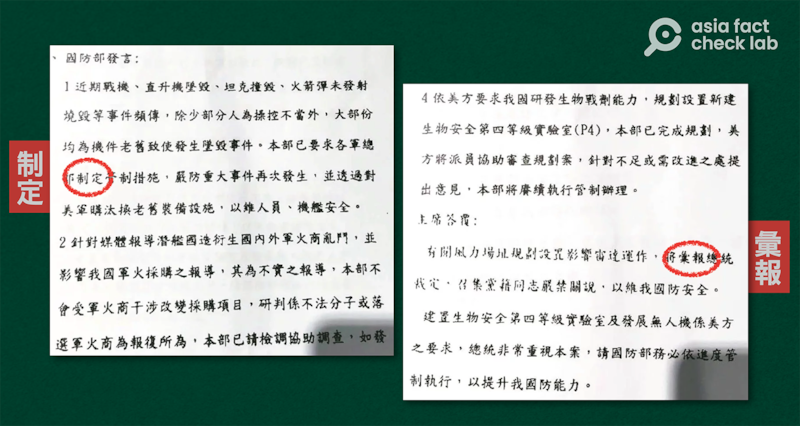 asia fact
check lab
制定
、國防部發言:
1近期戰機、直升機墜毀、坦克撞毀、火箭彈未發射
燒毀等事件頻傳,除少部分人為操控不當外,大部份
均為機件老舊致使發生墜毀事件。本部已要求各軍總
部制定管制措施,嚴防重大事件再次發生,並透過對
美軍購汰換老舊裝備設施,以維人員、機艦安全。
2針對媒體報導潛艦國造衍生國內外軍火商亂鬥,並
影響我國軍火採購之報導,其為不實之報導,本部不
會受軍火商干涉改變採購項目,研判係不法分子或落
選軍火商為報復所為,本部已請檢調協助調查,如發
4依美方要求我國研發生物戰劑能力,規劃設置新建
生物安全第四等級實驗室(P4),本部已完成規劃,美
方將派員協助審查規劃案,針對不足或需改進之處提
出意見,本部將賡續執行管制辦理。
主席答覆:
有關風力場址規劃設置影響雷達運作,將彙報總統
裁定,召集黨籍同志嚴禁關說,以維我國防安全。
建置生物安全第四等級實驗室及發展無人機係美方
之要求,總統非常重視本案,請國防部務必依進度管
制執行,以提升我國防能力。
彙報